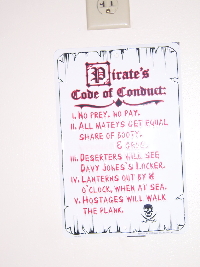 Pirate's
Code of Conduct:
I. No prey, no pay.
II. All mateys get equal
share of booty.
III. Deserters will see
Davy Jones's Locker.
IV. Lanterns out by 8
o'clock, when at sea.
V. Hostages will walk
the plank.